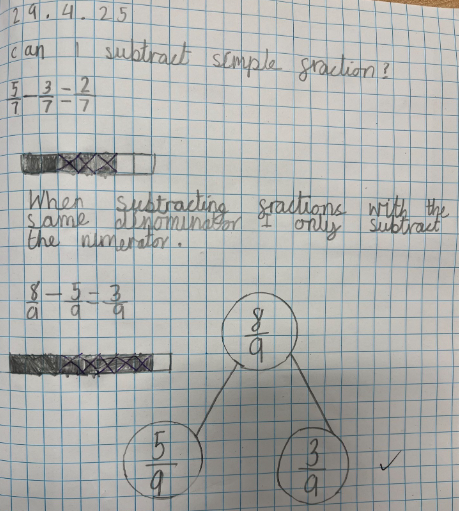 29.4.25
can I subtract simple graction?
5/7 - 3/7 = 2/7
When subtracting gractions with the
same denominator I only subtract
the nimerator.
8/9 - 5/9 = 3/9
8/9
5/9 3/9 ✓